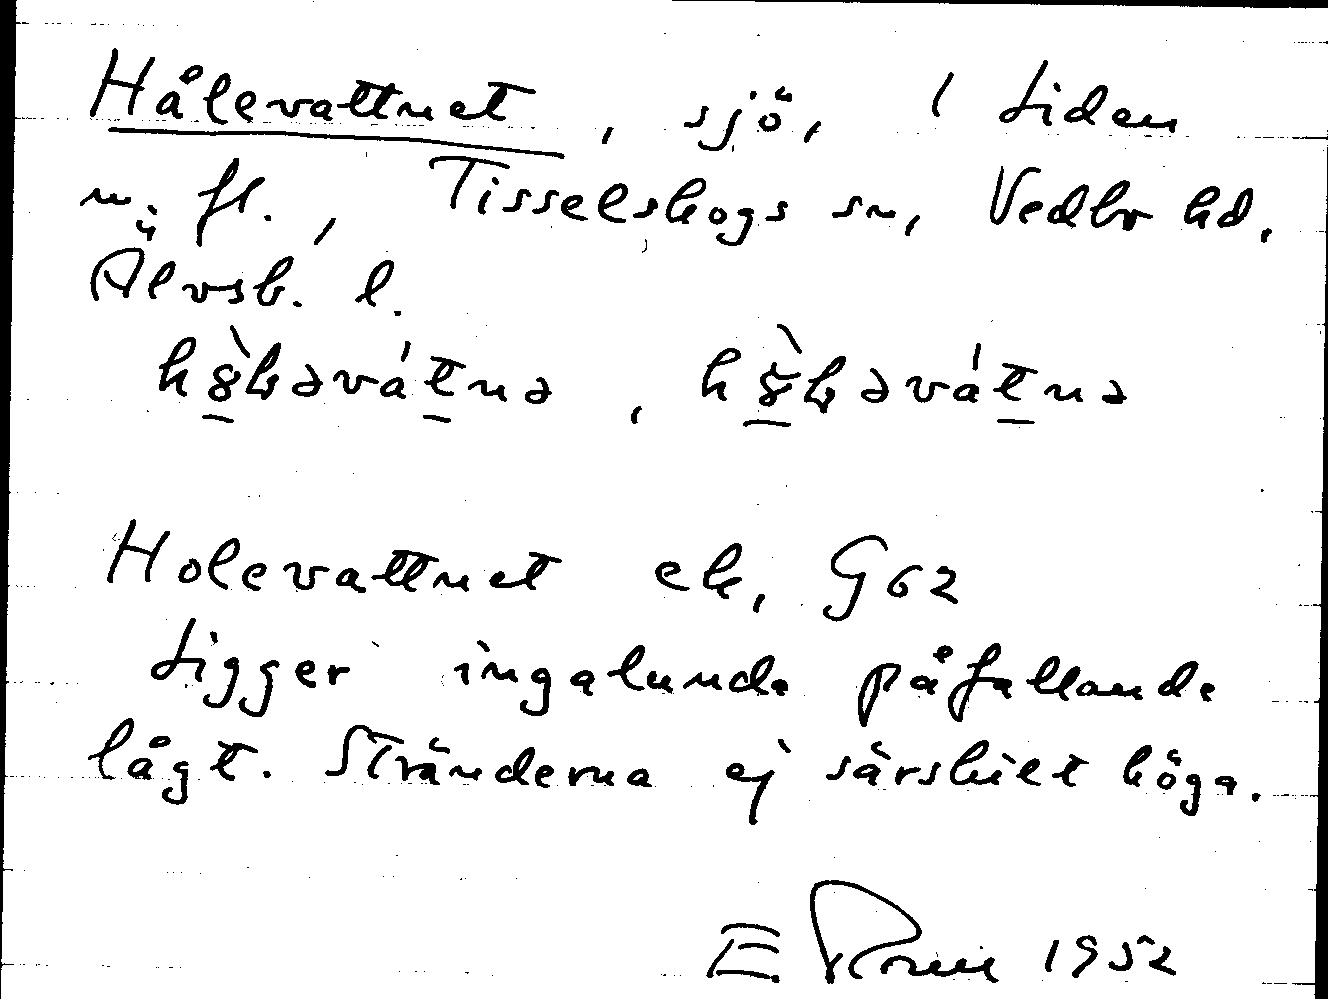 Hålevattnet, sjö, 1 Liden
m. fl., Tisselskogs sn, Vedbo hd.
Älvsb. l.
Holevattnet ek, G62
Ligger ingalunda påfallande
lågt. Stränderna ej särskilt höga.
E. 1952